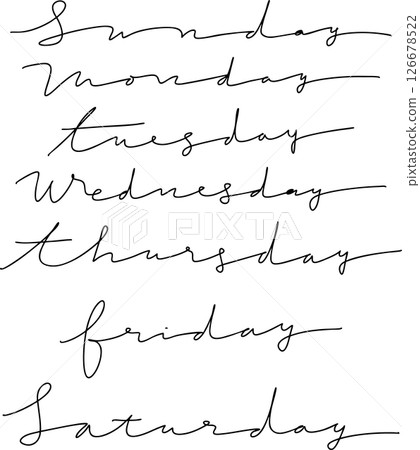 Sunday
Monday
tuesday
Wednesday
thursday
friday
Saturday
PIXTA
126678522